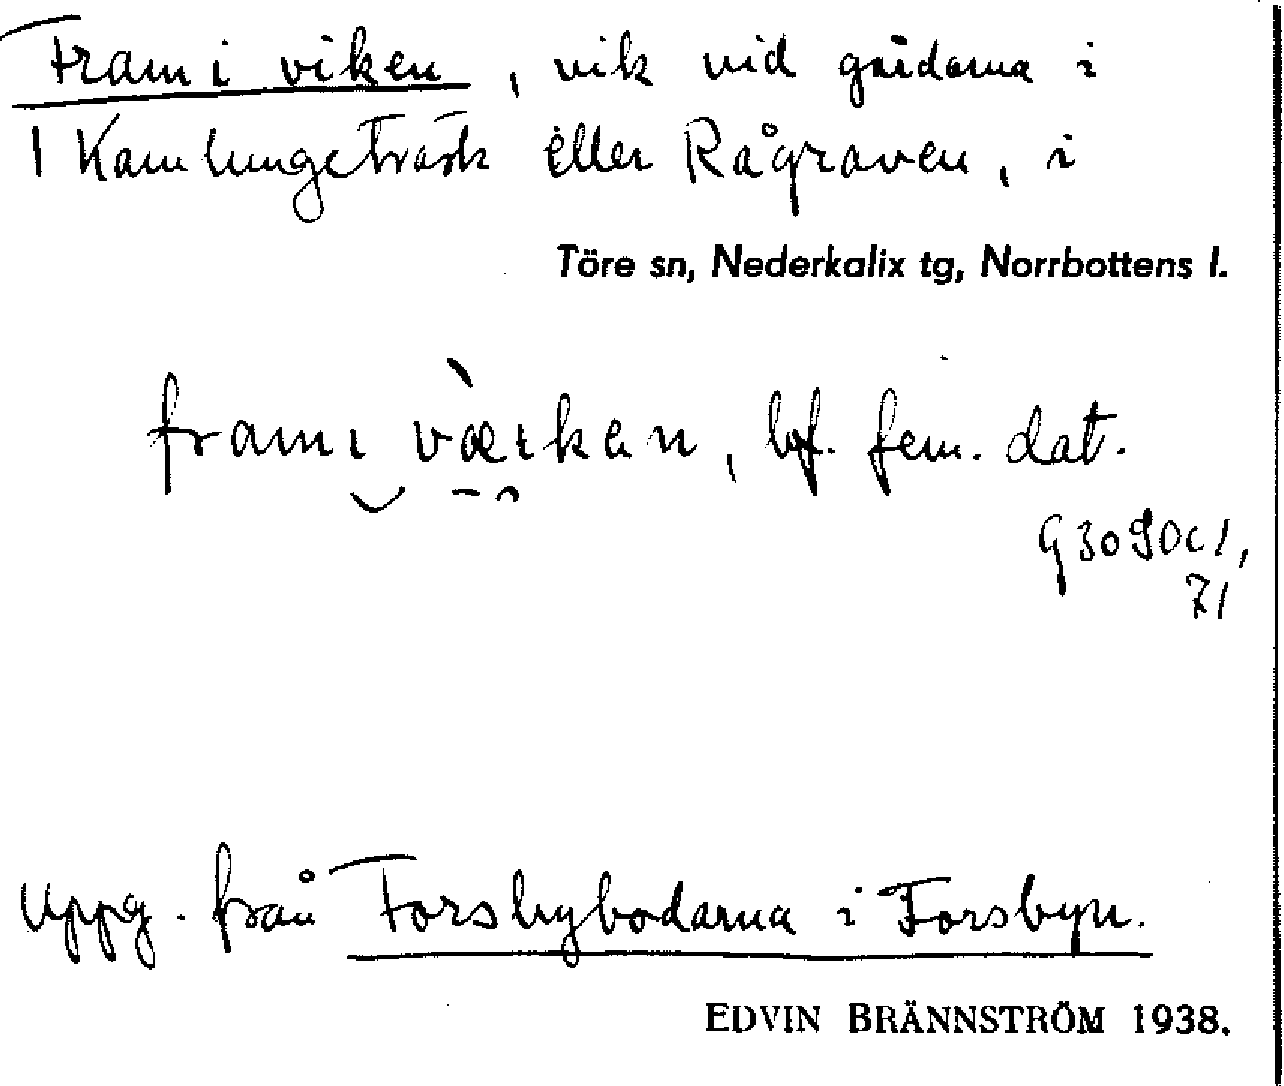 Fram i viken, vik vid gårdarna i
I Kamlungeträsk eller Rågraven, i
Töre sn, Nederkalix tg, Norrbottens l.
framı væ̀ıkan, bf. fem. dat.
G3090c1,
71
Uppg. från Forsbybodarna i Forsbyn.
EDVIN BRÄNNSTRÖM 1938.